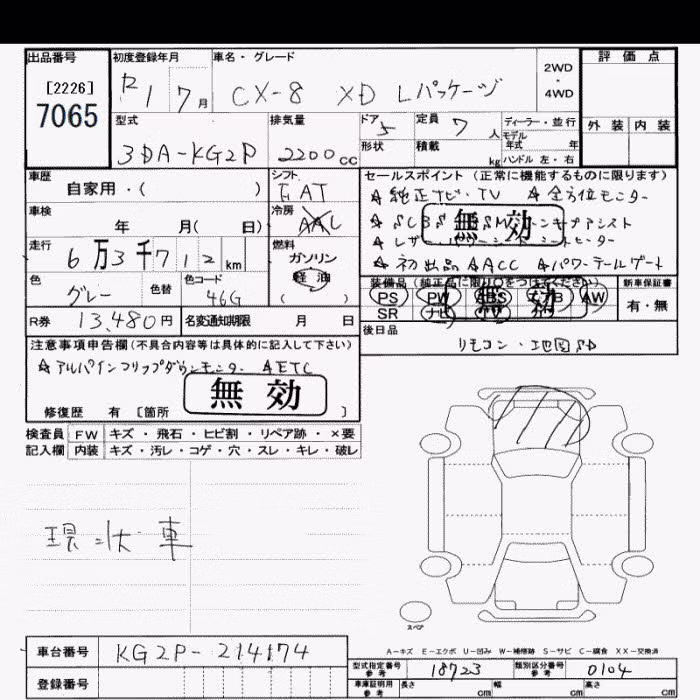 出品番号 初度登録年月 車名・グレード 評価点
[2226]
7065
R1 7月 CX-8 XD Lパッケージ 2WD・4WD
外装 内装
型式 排気量 ドア 定員 ディーラー・並行
3DA-KG2P 2200cc 5 7人 モデル年式 年
形状 積載 kg ハンドル 左・右
車歴 シフト セールスポイント(正常に機能するものに限ります)
自家用・( ) FAT ☆純正ナビ・TV ☆全方位モニター
車検 冷房 ☆SCBS
年 月( 日) AAC 無効
走行 燃料
6万3千712km ガソリン
軽油
☆初出品 ☆ACC ☆パワーテールゲート
色 色替 色コード ( ) 装備品(純正品に限り○をつけてください) 新車保証書
グレー 46G PS PW ABS エアB AW 有・無
SR ナビ 無効
R券 13,480円 名変通知期限 月 日 後日品
リモコン・地図SD
注意事項申告欄(不具合内容等は具体的に記入して下さい)
☆アルパインフリップダウンモニター ☆ETC
無効
修復歴 有 [箇所 ]
検査員 FW キズ・飛石・ヒビ割・リペア跡・×要
記入欄 内装 キズ・汚レ・コゲ・穴・スレ・キレ・破レ
現状車
スペア
A-キズ E-エクボ U-凹み W-補修跡 S-サビ C-腐食 XX-交換済
車台番号 KG2P-214174
型式指定番号 参考 18723 類別区分番号 参考 0104
登録番号 車庫証明用 参考 長さ cm 幅 cm 高さ cm